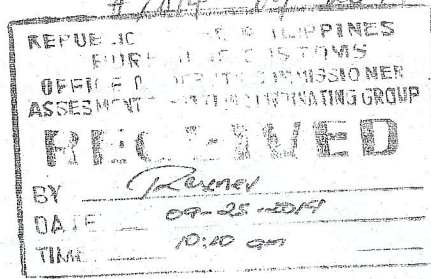 REPUBLIC OF THE PHILIPPINES
BUREAU OF CUSTOMS
OFFICE DEPUTY COMMISSIONER
ASSESMENT COORDINATING GROUP
RECEIVED
BY
DATE 09-25-2019
TIME 10:10 am